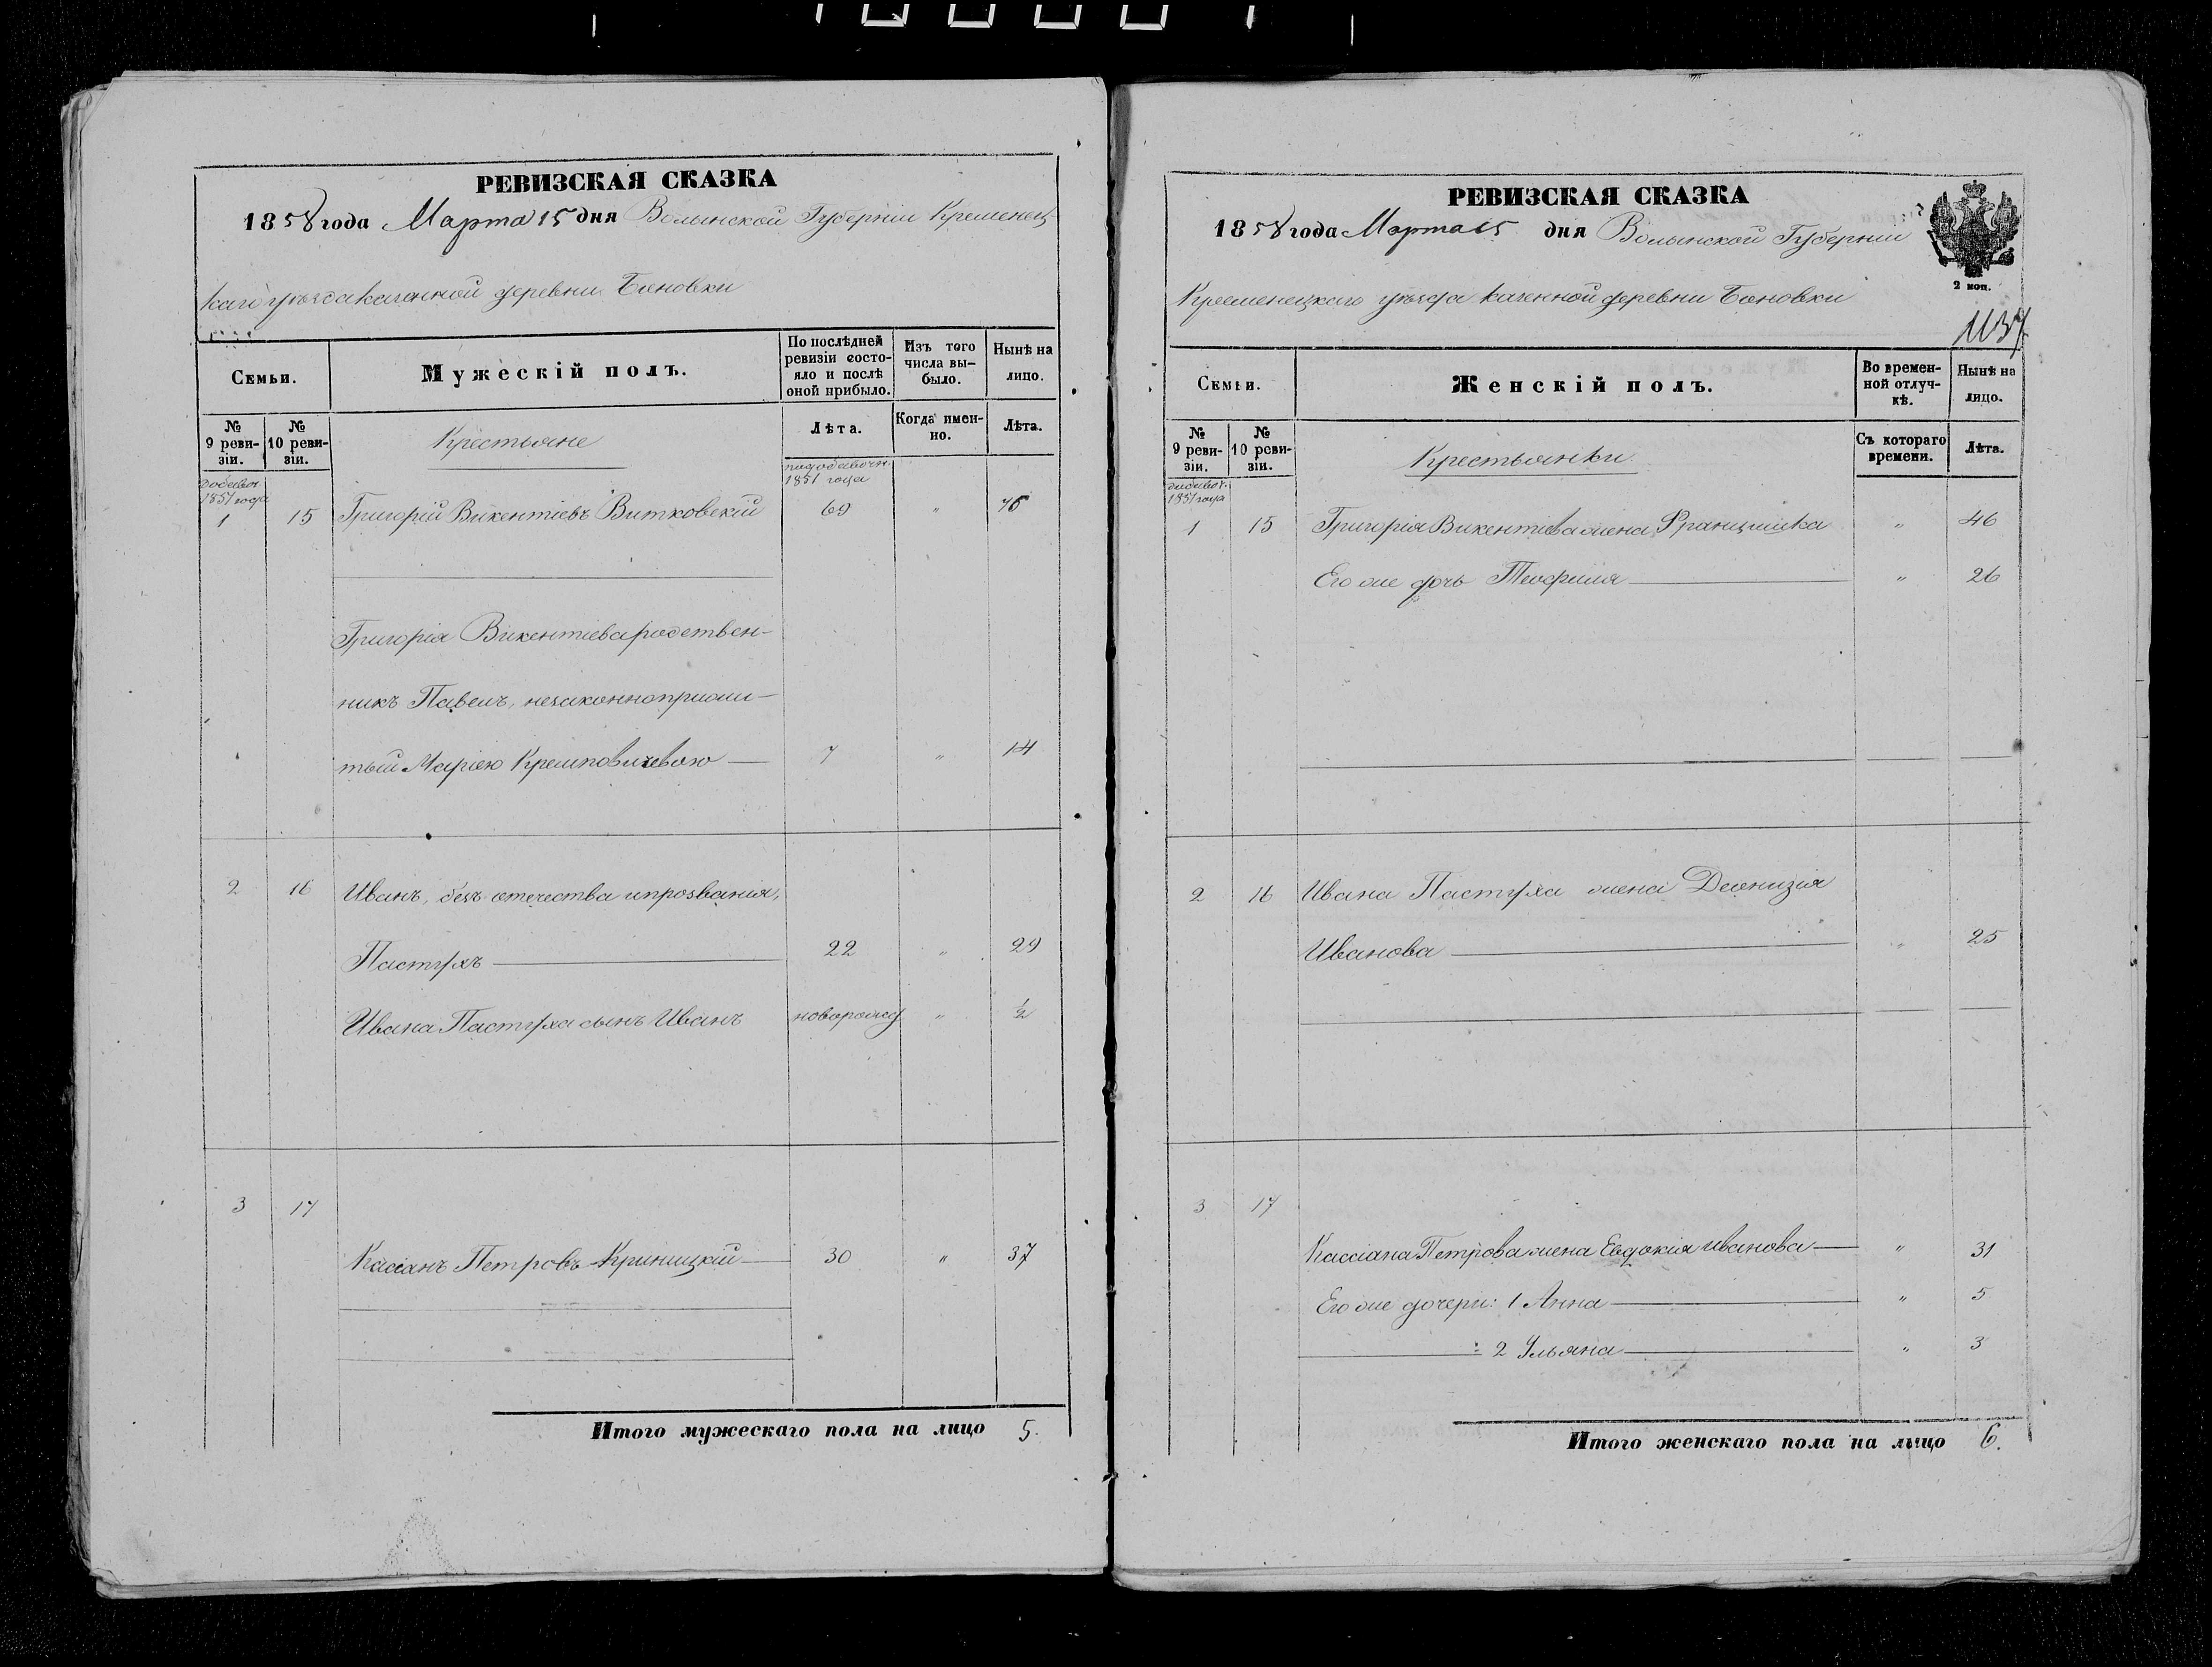 РЕВИЗСКАЯ СКАЗКА
1858 года Марта 15 дня Волынской Губерніи Кременец
каго уѣзда казенной деревни Боновки
Семьи.
Мужескій полъ.
По послѣдней ревизіи состо-
яло и послѣ оной прибыло.
Изъ того числа вы-
было.
Нынѣ на лицо.
№ 9 реви-
зіи.
№ 10 реви-
зіи.
Крестьяне
Лѣта.
Когда имен-
но.
Лѣта.
1851 года
1851 года
1 15 Григорій Викентіевъ Витковскій 69 "
Григорія Викентіева родствен-
никъ Павелъ, незаконноприжи-
тый Маріею 7 " 14
2 16 Иванъ, безъ отечества и прозванія,
Пастухъ 22 " 29
Ивана Пастуха сынъ Иванъ новорожд. " ½
3 17
Касіанъ Петровъ Криницкій 30 " 37
Итого мужескаго пола на лицо 5.
РЕВИЗСКАЯ СКАЗКА
1858 года Марта 15 дня Волынской Губерніи
2 коп.
Кременецкаго уѣзда казенной деревни Боновки
Семьи.
Женскій полъ.
Во времен-
ной отлуч-
кѣ.
Нынѣ на лицо.
№ 9 реви-
зіи.
№ 10 реви-
зіи.
Крестьянки
Съ котораго времени.
Лѣта.
1851 года
1 15 Григорія Викентіева жена Францишка " 46
Его же дочь Теофиля " 26
2 16 Ивана Пастуха жена Деонизія
Иванова " 25
3 17
Кассіана Петрова жена Евдокія Иванова " 31
Его же дочери: 1 Анна " 5
: 2 Ульяна " 3
Итого женскаго пола на лицо 6.